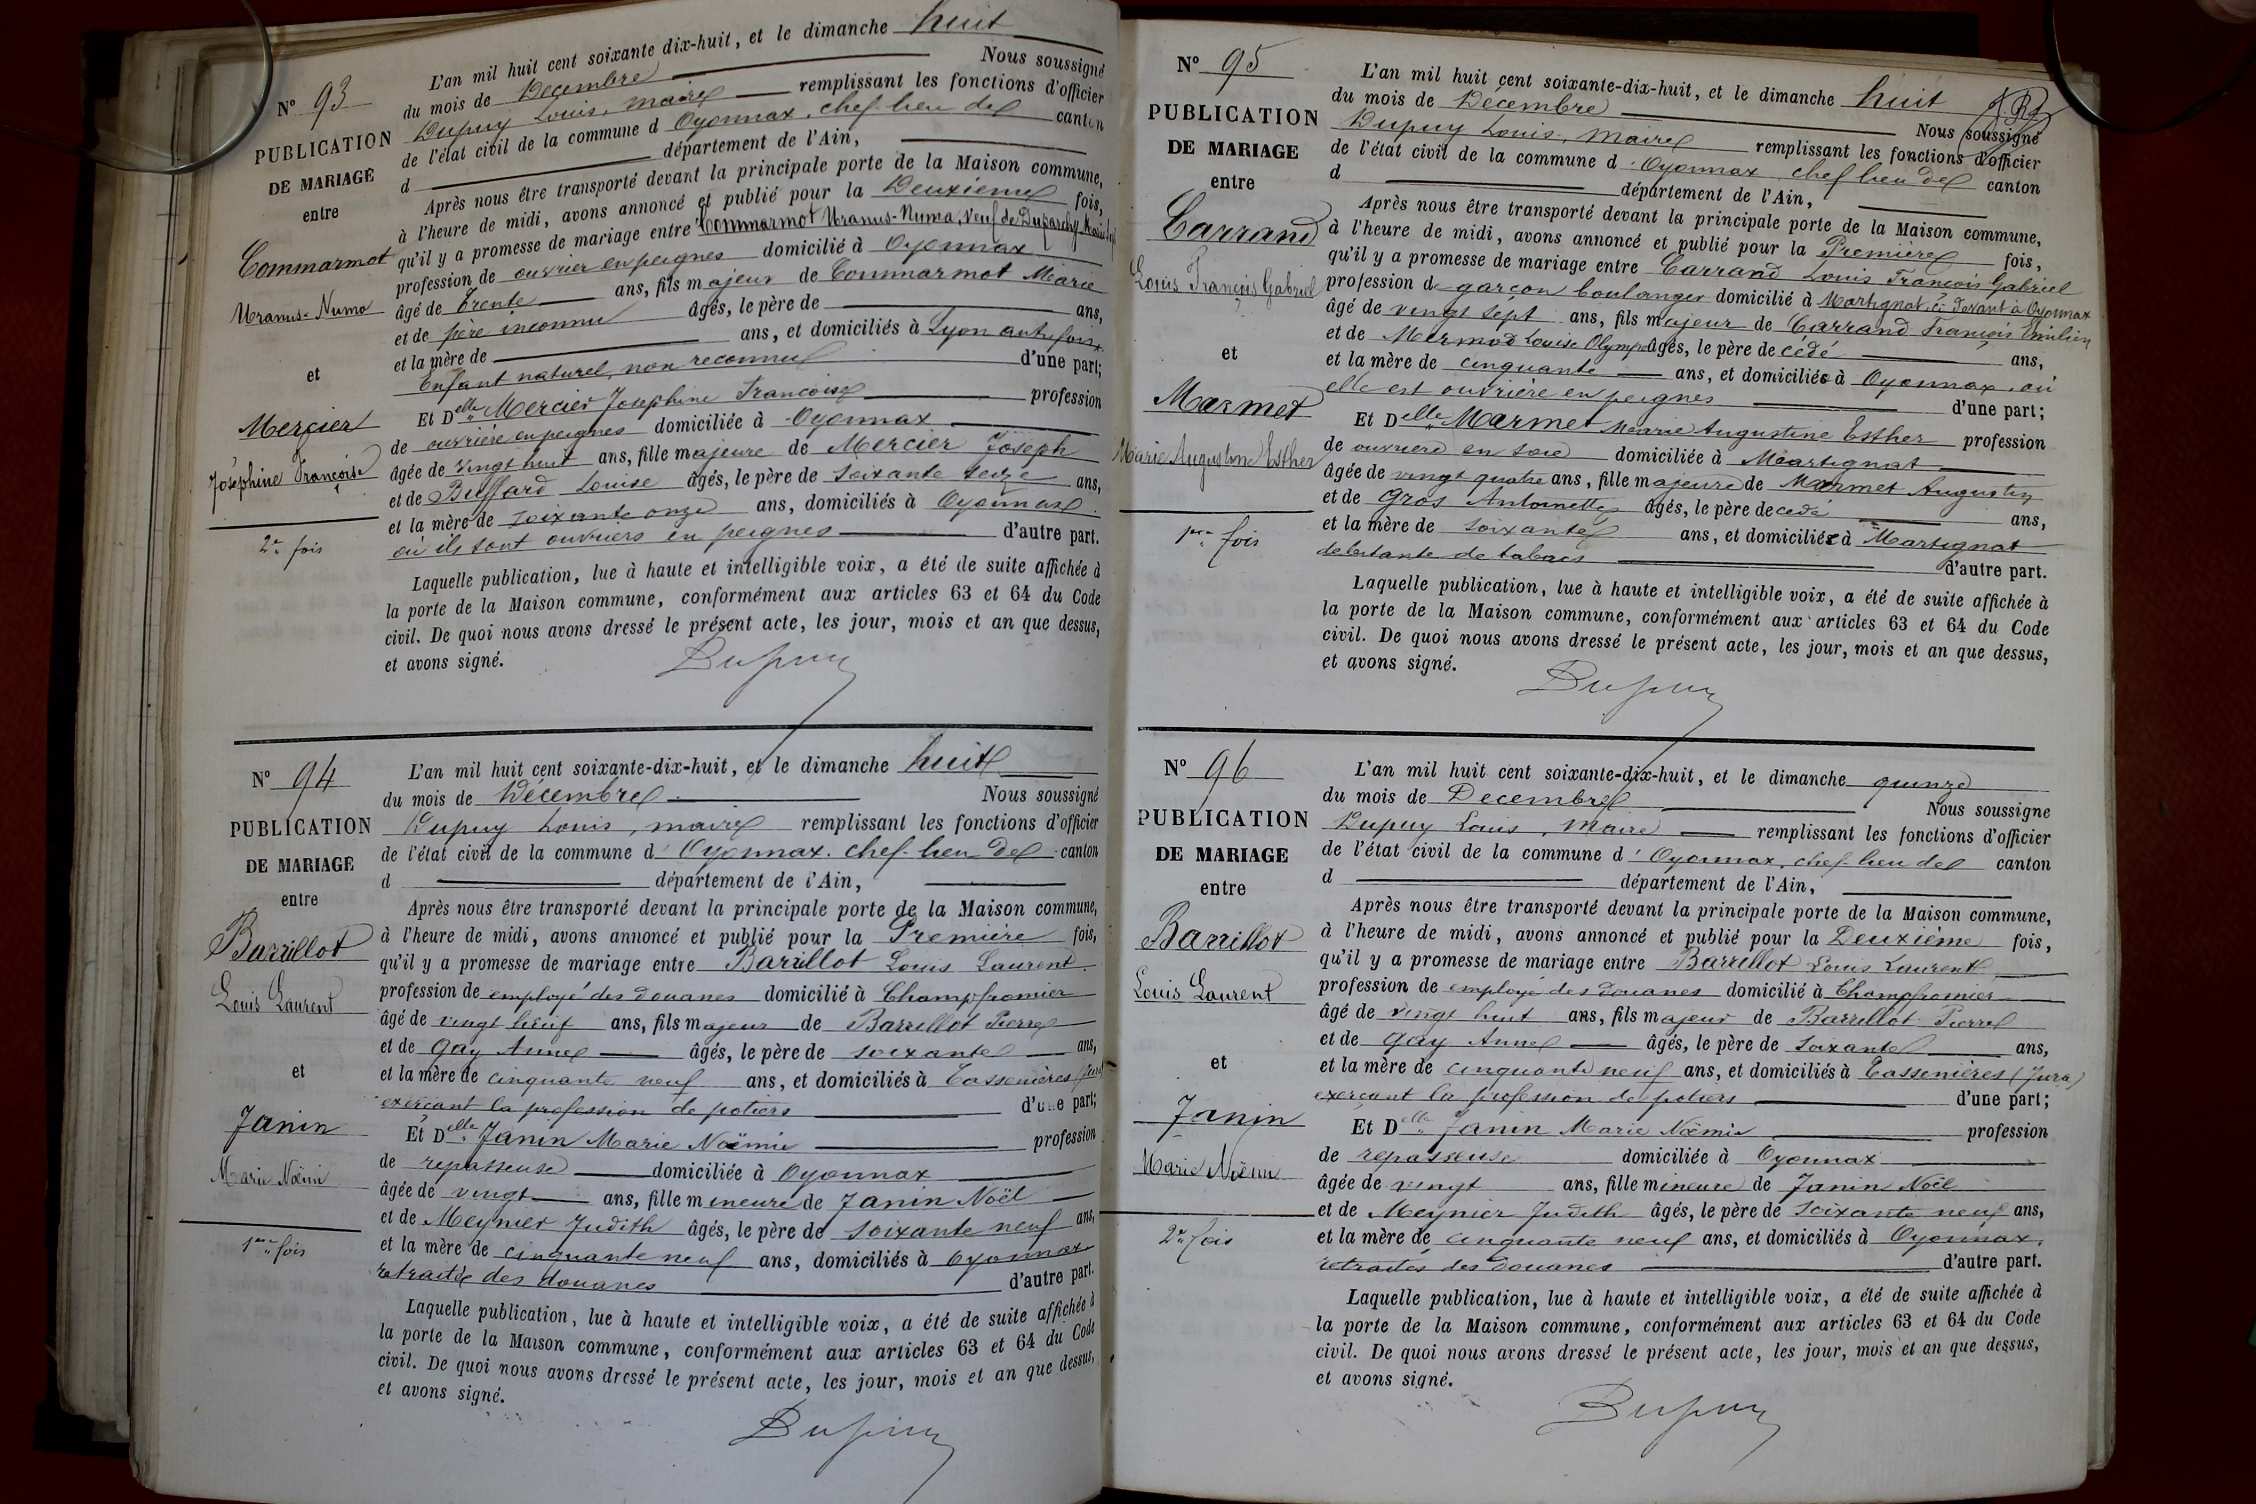 N° 93
PUBLICATION
DE MARIAGE
entre
Commarmot
Uranus-Numa
et
Mercier
Joséphine Françoise
2e fois
L'an mil huit cent soixante dix-huit, et le dimanche huit
du mois de Décembre Nous soussigné
Dupuy Louis, maire remplissant les fonctions d'officier
de l'état civil de la commune d Oyonnax, chef-lieu de canton
d département de l'Ain,
Après nous être transporté devant la principale porte de la Maison commune,
à l'heure de midi, avons annoncé et publié pour la Deuxième fois,
qu'il y a promesse de mariage entre Commarmot Uranus-Numa, veuf de Duparchy
profession de ouvrier en peignes domicilié à Oyonnax
âgé de trente ans, fils majeur de Commarmot Marie
et de père inconnu âgés, le père de ans,
et la mère de ans, et domiciliés à Lyon autrefois.
Enfant naturel, non reconnu d'une part;
Et Delle Mercier Joséphine Françoise profession
de ouvrière en peignes domiciliée à Oyonnax
âgée de vingt huit ans, fille majeure de Mercier Joseph
et de Buffard Louise âgés, le père de soixante seize ans,
et la mère de soixante onze ans, domiciliés à Oyonnax
où ils sont ouvriers en peignes d'autre part.
Laquelle publication, lue à haute et intelligible voix, a été de suite affichée à
la porte de la Maison commune, conformément aux articles 63 et 64 du Code
civil. De quoi nous avons dressé le présent acte, les jour, mois et an que dessus,
et avons signé.
Dupuy
N° 94
PUBLICATION
DE MARIAGE
entre
Barrillot
Louis Laurent
et
Janin
Marie Noémi
1ère fois
L'an mil huit cent soixante-dix-huit, et le dimanche huit
du mois de Décembre Nous soussigné
Dupuy Louis, maire remplissant les fonctions d'officier
de l'état civil de la commune d' Oyonnax. chef-lieu de canton
d département de l'Ain,
Après nous être transporté devant la principale porte de la Maison commune,
à l'heure de midi, avons annoncé et publié pour la Première fois,
qu'il y a promesse de mariage entre Barrillot Louis Laurent
profession de employé des douanes domicilié à Champfromier
âgé de vingt huit ans, fils majeur de Barrillot Pierre
et de Gay Anne âgés, le père de soixante ans,
et la mère de cinquante neuf ans, et domiciliés à Tassenières (Jura)
exerçant la profession de potiers d'une part;
Et Delle Janin Marie Noëmie profession
de repasseuse domiciliée à Oyonnax
âgée de vingt ans, fille mineure de Janin Noël
et de Meynier Judith âgés, le père de soixante neuf ans,
et la mère de cinquante neuf ans, domiciliés à Oyonnax
retraités des douanes d'autre part.
Laquelle publication, lue à haute et intelligible voix, a été de suite affichée à
la porte de la Maison commune, conformément aux articles 63 et 64 du Code
civil. De quoi nous avons dressé le présent acte, les jour, mois et an que dessus,
et avons signé.
Dupuy
N° 95
PUBLICATION
DE MARIAGE
entre
Carrand
Louis François Gabriel
et
Marmet
Marie Augustine Esther
1ère fois
L'an mil huit cent soixante-dix-huit, et le dimanche huit
du mois de Décembre Nous soussigné
Dupuy Louis, Maire remplissant les fonctions d'officier
de l'état civil de la commune d' Oyonnax chef lieu de canton
d département de l'Ain,
Après nous être transporté devant la principale porte de la Maison commune,
à l'heure de midi, avons annoncé et publié pour la Première fois,
qu'il y a promesse de mariage entre Carrand Louis François Gabriel
profession de garçon boulanger domicilié à Martignat, ci-devant à Oyonnax
âgé de vingt sept ans, fils majeur de Carrand François Emilien
et de Mermod Louise Olympe âgés, le père de cédé ans,
et la mère de cinquante ans, et domiciliée à Oyonnax, où
elle est ouvrière en peignes d'une part;
Et Delle Marmet Marie Augustine Esther profession
de ouvrière en soie domiciliée à Martignat
âgée de vingt quatre ans, fille majeure de Marmet Augustin
et de Gros Antoinette âgés, le père decédé ans,
et la mère de soixante ans, et domiciliée à Martignat
debitante de tabacs d'autre part.
Laquelle publication, lue à haute et intelligible voix, a été de suite affichée à
la porte de la Maison commune, conformément aux articles 63 et 64 du Code
civil. De quoi nous avons dressé le présent acte, les jour, mois et an que dessus,
et avons signé.
Dupuy
N° 96
PUBLICATION
DE MARIAGE
entre
Barrillot
Louis Laurent
et
Janin
Marie Noëmi
2e fois
L'an mil huit cent soixante-dix-huit, et le dimanche quinze
du mois de Decembre Nous soussigné
Dupuy Louis, Maire remplissant les fonctions d'officier
de l'état civil de la commune d' Oyonnax, chef lieu de canton
d département de l'Ain,
Après nous être transporté devant la principale porte de la Maison commune,
à l'heure de midi, avons annoncé et publié pour la Deuxième fois,
qu'il y a promesse de mariage entre Barrillot Louis Laurent
profession de employé des douanes domicilié à Champfromier
âgé de vingt huit ans, fils majeur de Barrillot Pierre
et de Gay Anne âgés, le père de soixante ans,
et la mère de cinquante neuf ans, et domiciliés à Tassenières (Jura)
exerçant la profession de potiers d'une part;
Et Delle Janin Marie Noëmie profession
de repasseuse domiciliée à Oyonnax
âgée de vingt ans, fille mineure de Janin Noël
et de Meynier Judith âgés, le père de soixante neuf ans,
et la mère de cinquante neuf ans, et domiciliés à Oyonnax.
retraités des douanes d'autre part.
Laquelle publication, lue à haute et intelligible voix, a été de suite affichée à
la porte de la Maison commune, conformément aux articles 63 et 64 du Code
civil. De quoi nous avons dressé le présent acte, les jour, mois et an que dessus,
et avons signé.
Dupuy